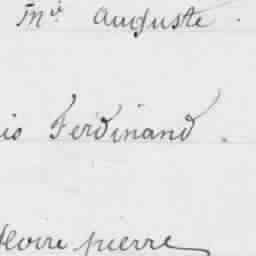 Mie Auguste.
is Ferdinand.
lloire pierre